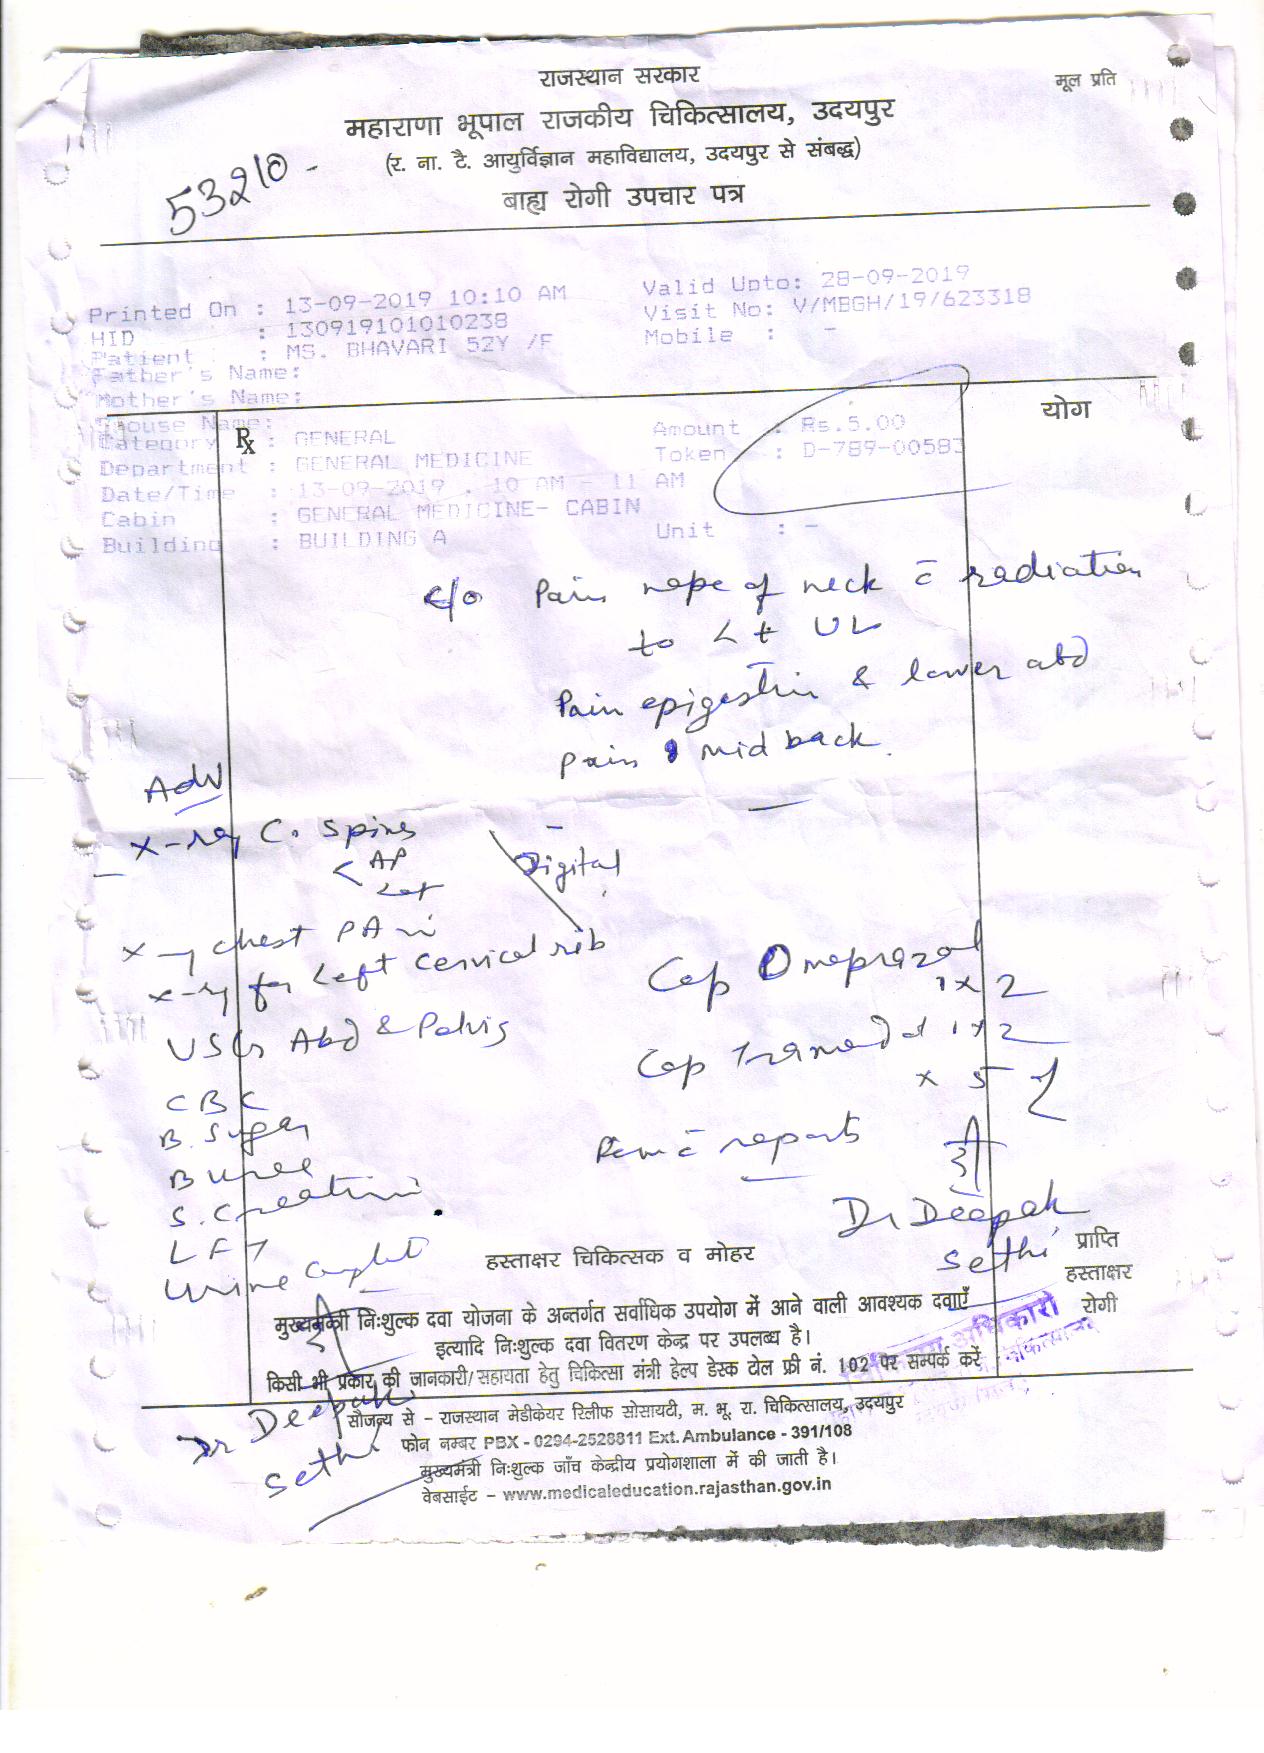 राजस्थान सरकार
मूल प्रति
महाराणा भूपाल राजकीय चिकित्सालय, उदयपुर
(र. ना. टै. आयुर्विज्ञान महाविद्यालय, उदयपुर से संबद्ध)
53210 -
बाह्य रोगी उपचार पत्र
Printed On : 13-09-2019 10:10 AM Valid Upto: 28-09-2019
HID : 130919101010238 Visit No: V/MBGH/19/623318
Patient : MS. BHAVARI 52Y /F Mobile : -
Father's Name:
Mother's Name:
Spouse Name:
योग
Rx
Category : GENERAL Amount : Rs.5.00
Department : GENERAL MEDICINE Token : D-789-00583
Date/Time : 13-09-2019 , 10 AM - 11 AM
Cabin : GENERAL MEDICINE- CABIN
Building : BUILDING A Unit : -
c/o Pain nape of neck c̄ radiation
to Lt UL
Pain epigastrin & lower abd
pain mid back.
Adv
X-ray C. Spine
< AP
Lat
Digital
X-ry chest PA
X-ry for Left Cervical rib
USG Abd & Pelvis
CBC
B. Sugar
B urea
S. Creatini
LFT
Urine
Cap Omeprazol
1x2
Cap Tramadol 1x2
x 5
c̄ reports
Dr Deepak
Sethi
हस्ताक्षर चिकित्सक व मोहर
प्राप्ति
हस्ताक्षर
रोगी
मुख्यमंत्री निःशुल्क दवा योजना के अन्तर्गत सर्वाधिक उपयोग में आने वाली आवश्यक दवाएँ
इत्यादि निःशुल्क दवा वितरण केन्द्र पर उपलब्ध है।
किसी भी प्रकार की जानकारी/सहायता हेतु चिकित्सा मंत्री हेल्प डेस्क टोल फ्री नं. 102 पर सम्पर्क करें
अधिकारी
Dr Deepak
Sethi
सौजन्य से - राजस्थान मेडीकेयर रिलीफ सोसायटी, म. भू. रा. चिकित्सालय, उदयपुर
फोन नम्बर PBX - 0294-2528811 Ext. Ambulance - 391/108
मुख्यमंत्री निःशुल्क जाँच केन्द्रीय प्रयोगशाला में की जाती है।
वेबसाईट - www.medicaleducation.rajasthan.gov.in